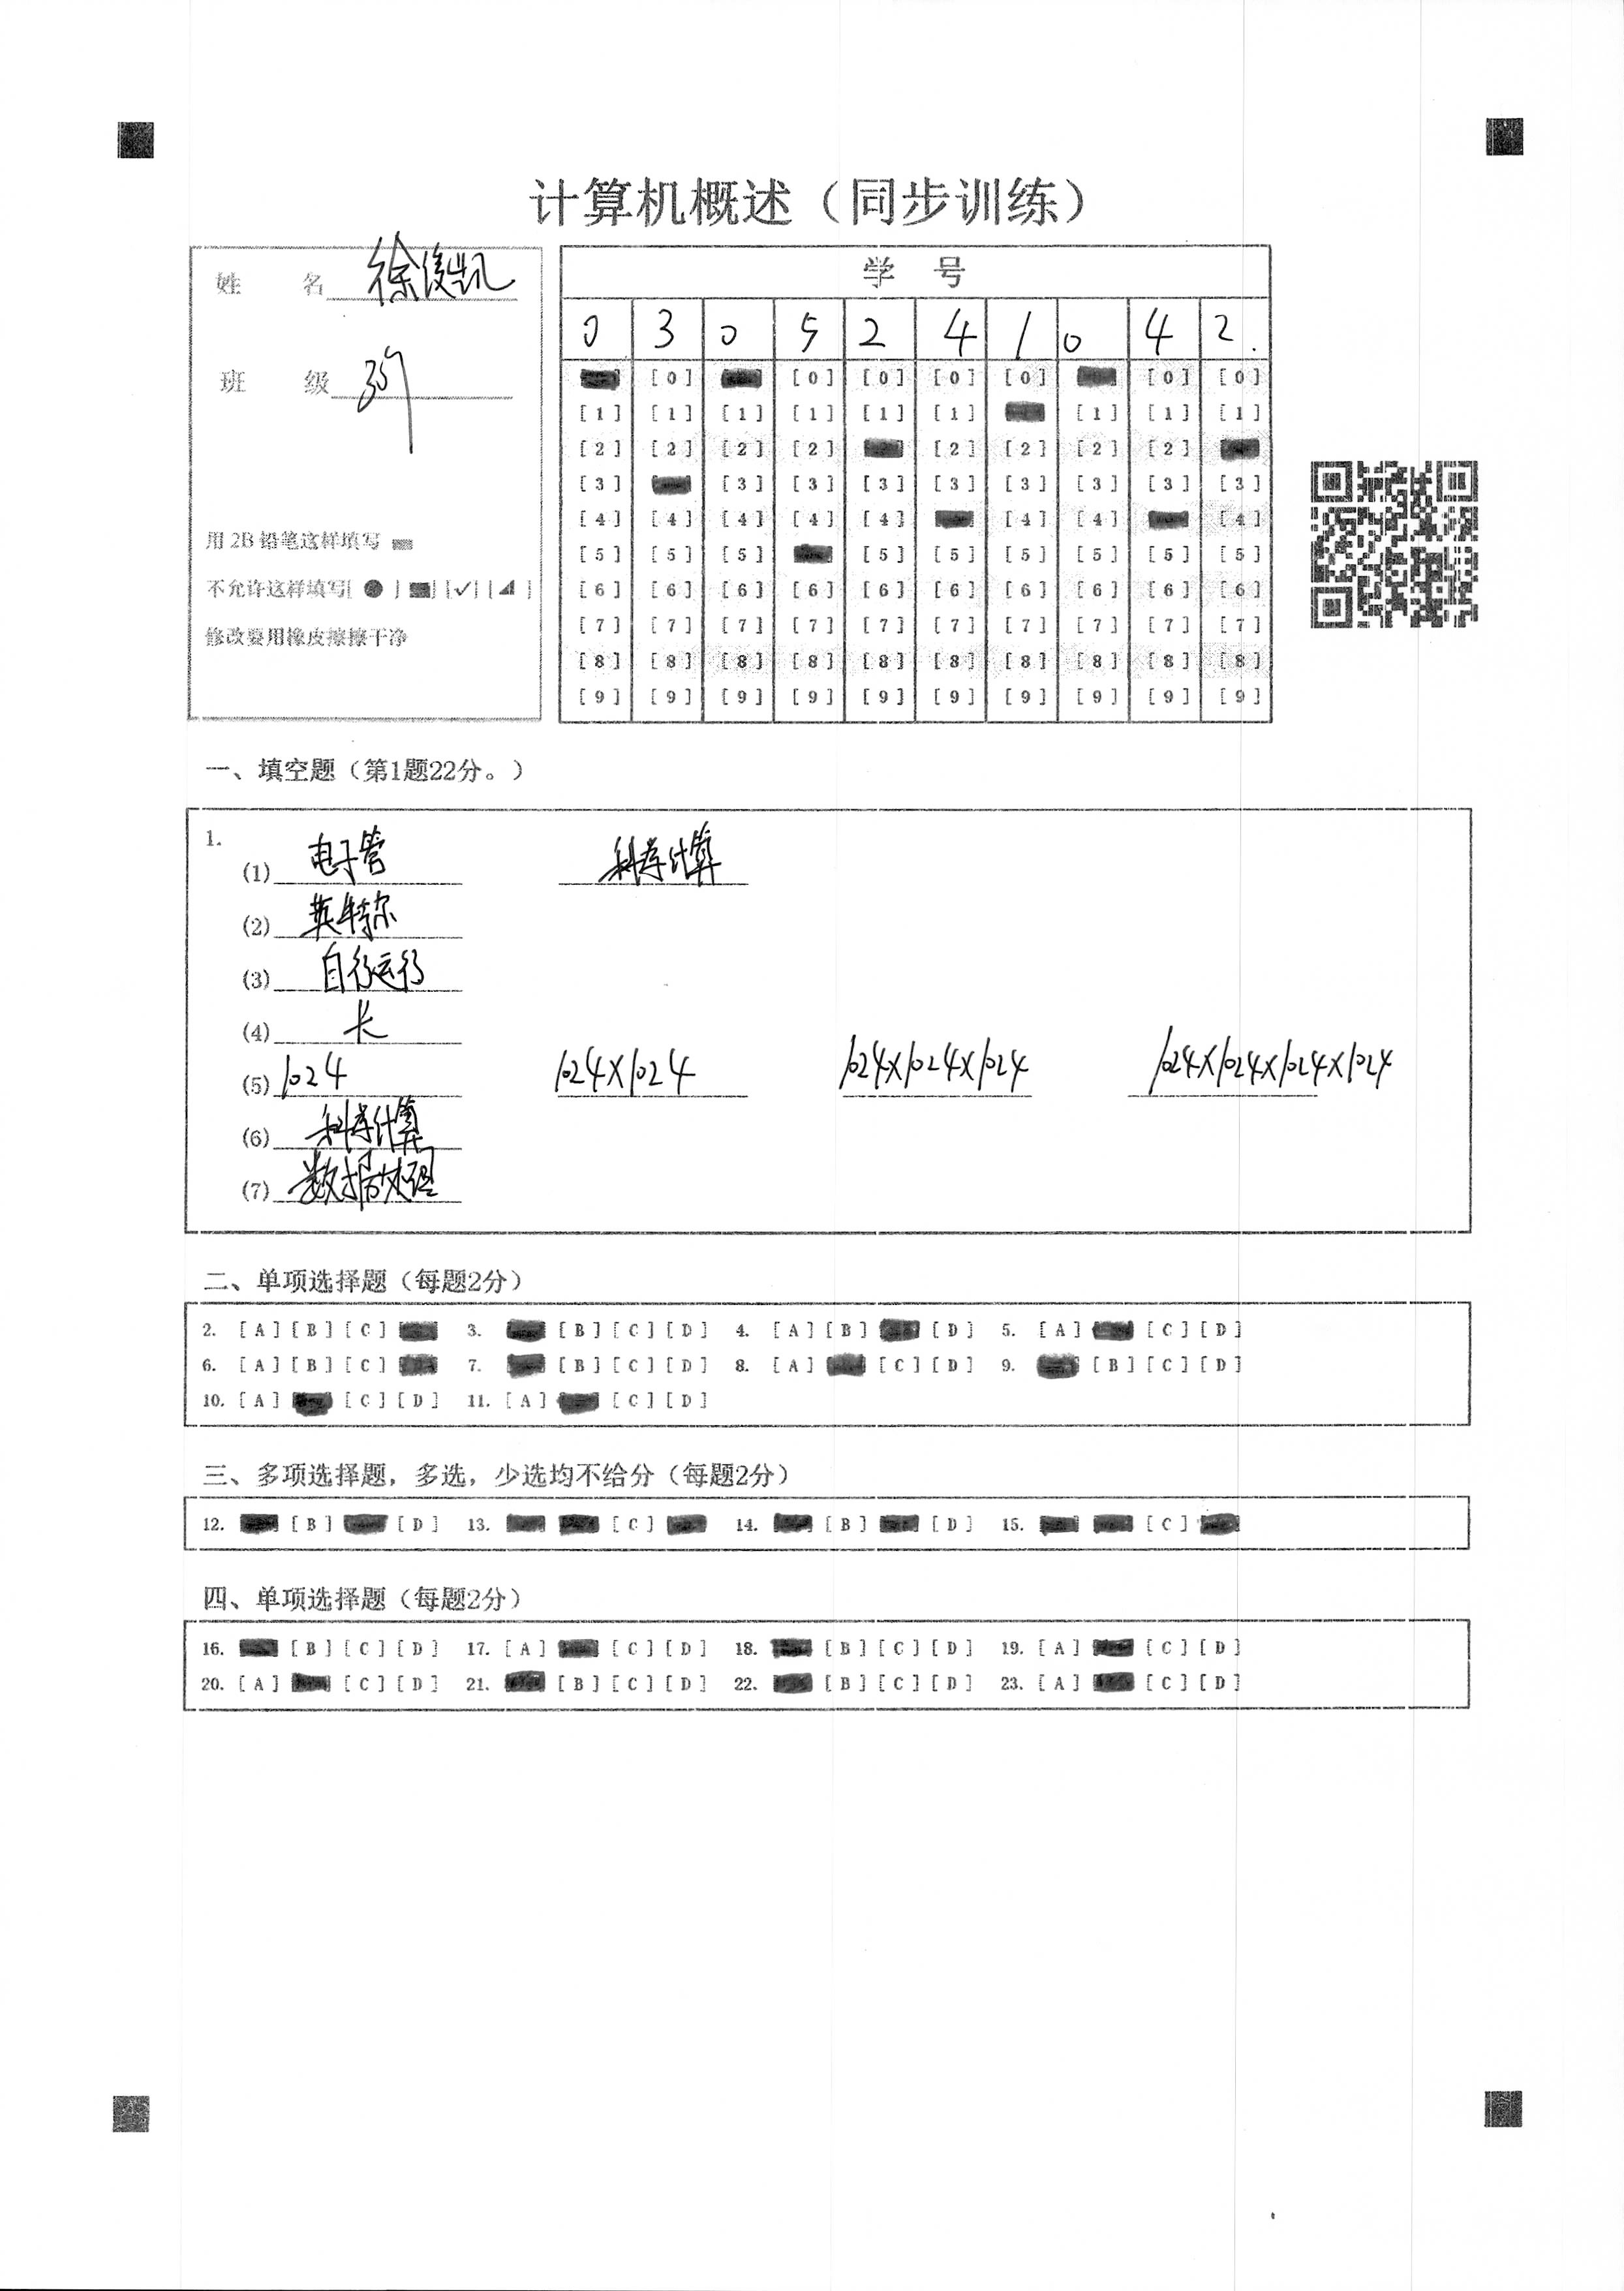 计算机概述（同步训练）
姓 名 徐俊凯
班 级
用 2B 铅笔这样填写
不允许这样填写[ ● ] [■] [✓] [◢ ]
修改要用橡皮擦擦干净
学 号
0 3 0 5 2 4 1 0 4 2.
[0] [0] [0] [0] [0] [0] [0]
[1] [1] [1] [1] [1] [1] [1] [1] [1]
[2] [2] [2] [2] [2] [2] [2] [2]
[3] [3] [3] [3] [3] [3] [3] [3] [3]
[4] [4] [4] [4] [4] [4] [4] [4]
[5] [5] [5] [5] [5] [5] [5] [5] [5]
[6] [6] [6] [6] [6] [6] [6] [6] [6] [6]
[7] [7] [7] [7] [7] [7] [7] [7] [7] [7]
[8] [8] [8] [8] [8] [8] [8] [8] [8] [8]
[9] [9] [9] [9] [9] [9] [9] [9] [9] [9]
一、填空题（第1题22分。）
1.
(1) 电子管 科学计算
(2) 英特尔
(3) 自行运行
(4) 长
(5) 1024 1024×1024 1024×1024×1024 1024×1024×1024×1024
(6) 科学计算
(7) 数据处理
二、单项选择题（每题2分）
2. [A] [B] [C] 3. [B] [C] [D] 4. [A] [B] [D] 5. [A] [C] [D]
6. [A] [B] [C] 7. [B] [C] [D] 8. [A] [C] [D] 9. [B] [C] [D]
10. [A] [C] [D] 11. [A] [C] [D]
三、多项选择题，多选，少选均不给分（每题2分）
12. [B] [D] 13. [C] 14. [B] [D] 15. [C]
四、单项选择题（每题2分）
16. [B] [C] [D] 17. [A] [C] [D] 18. [B] [C] [D] 19. [A] [C] [D]
20. [A] [C] [D] 21. [B] [C] [D] 22. [B] [C] [D] 23. [A] [C] [D]